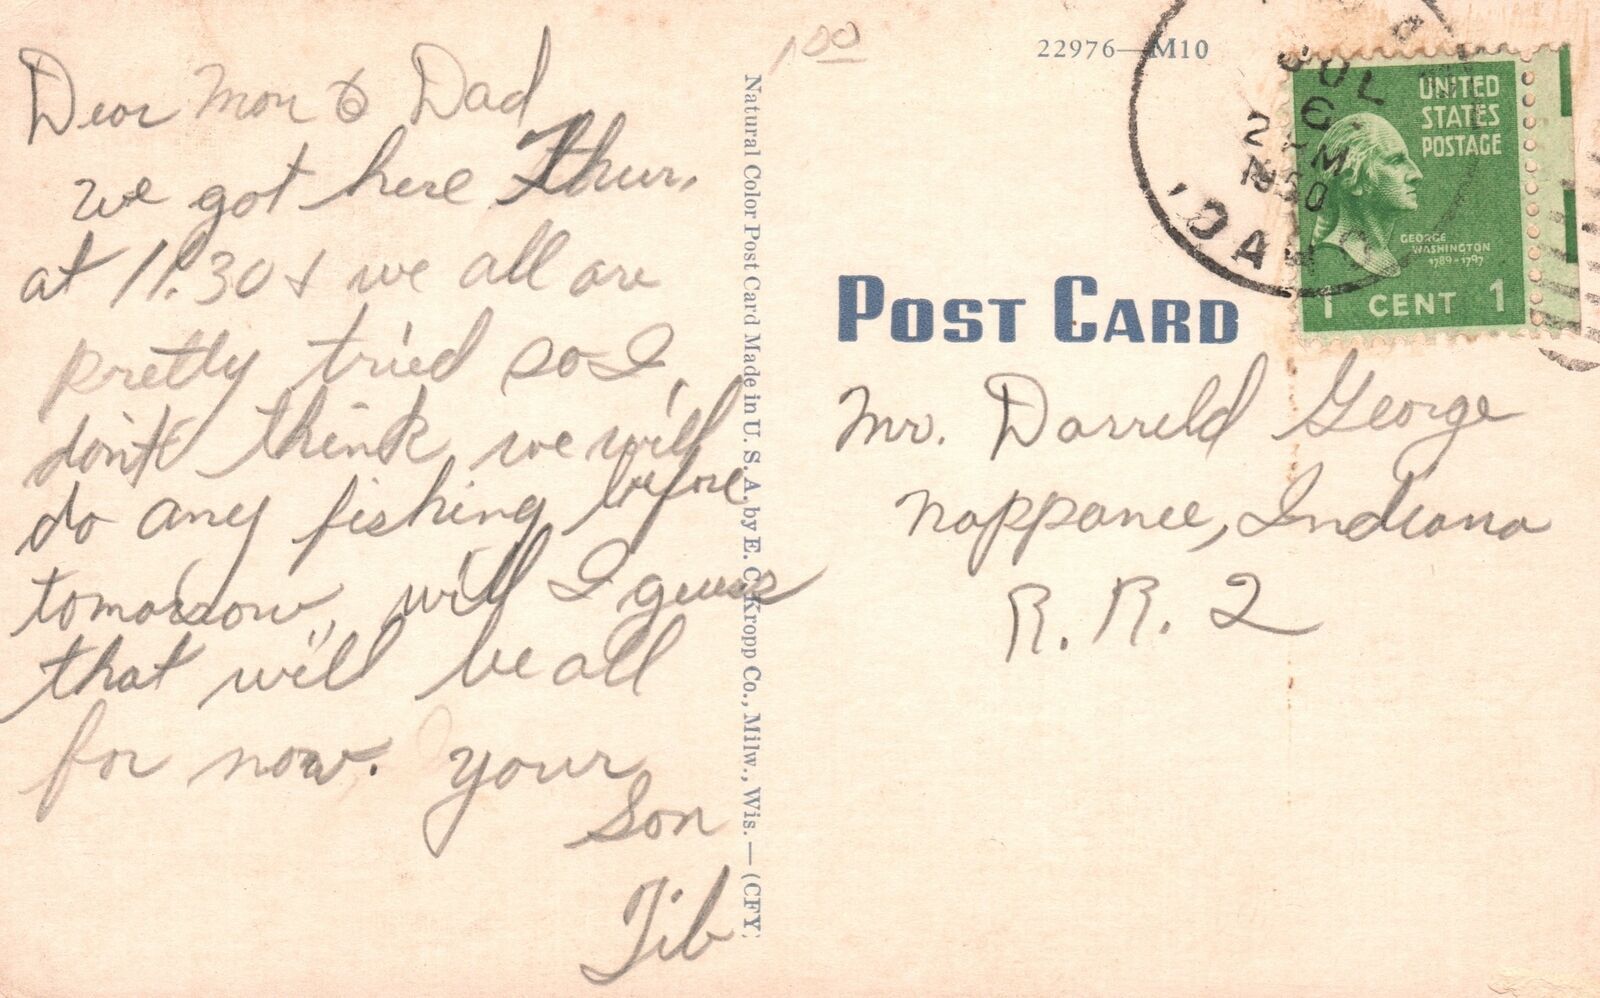 Dear Mom & Dad
we got here Thur.
at 11:30 & we all are
pretty tried so I
don't think we will
do any fishing before
tomorrow, will I guess
that will be all
for now. Your
Son
Tib
Natural Color Post Card Made in U. S. A. by E. C. Kropp Co., Milw., Wis. — (CFY)
1 00
22976—M10
JUL
6
2 PM
1950
IDAHO
UNITED
STATES
POSTAGE
GEORGE
WASHINGTON
1789-1797
1 CENT 1
POST CARD
Mr. Darreld George
Nappanee, Indiana
R. R. 2